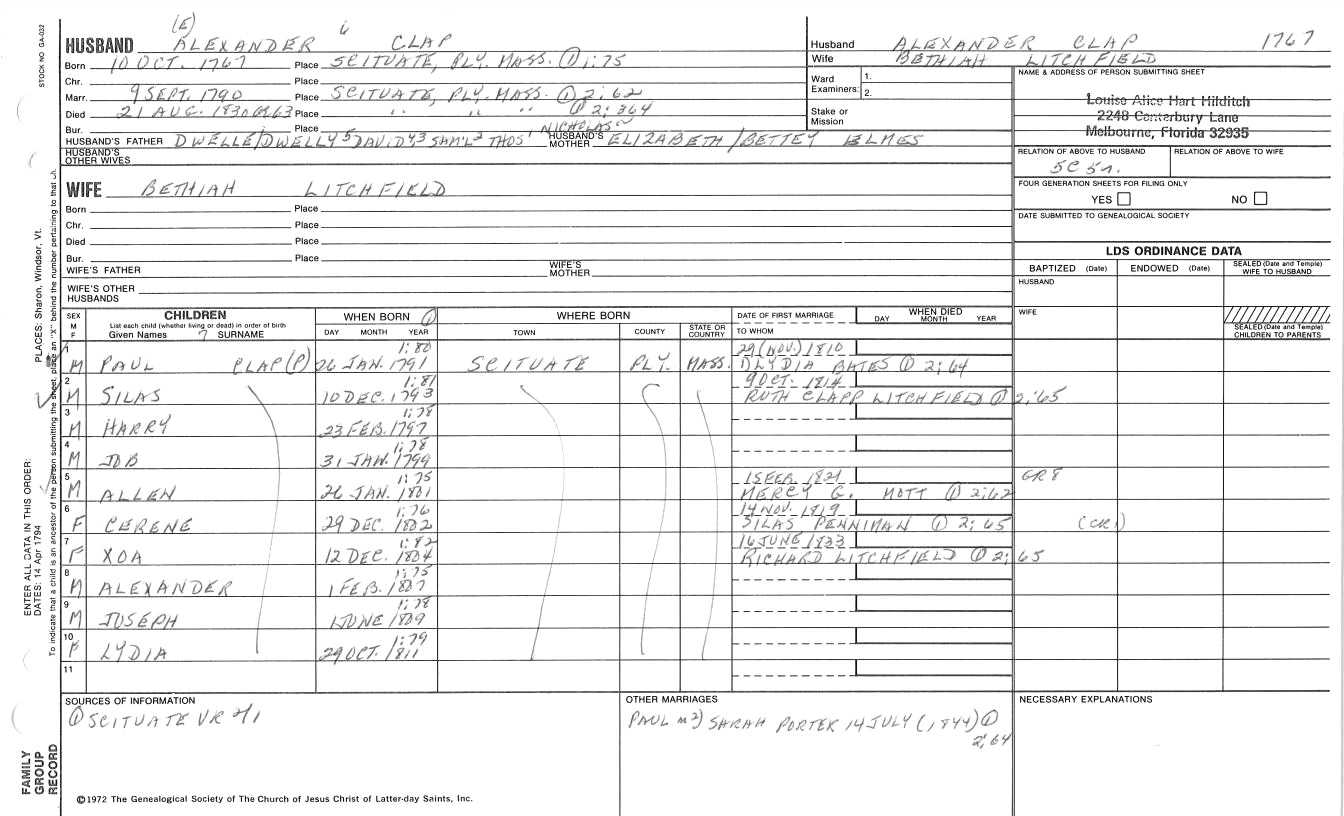 STOCK NO GA-032
PLACES: Sharon, Windsor, Vt.
ENTER ALL DATA IN THIS ORDER:
DATES: 14 Apr 1794
To indicate that a child is an ancestor of the person submitting the sheet, place an "X" behind the number pertaining to that
FAMILY
GROUP
RECORD
(E)
HUSBAND ALEXANDER CLAP
Born 10 OCT. 1767 Place SCITUATE, PLY. MASS. ① 1:75
Chr. Place
Marr. 9 SEPT. 1790 Place SCITUATE, PLY. MASS. ① 2:62
Died 21 AUG. 1830 Place " " " ① 2:364
Bur. Place
NICHOLAS
HUSBAND'S FATHER DWELLE/DWELLY 5 DAVID 43 SAM'L 2 THOS 1 HUSBAND'S MOTHER ELIZABETH/BETTEY ELMES
HUSBAND'S OTHER WIVES
Husband ALEXANDER CLAP 1767
Wife BETHIAH LITCHFIELD
Ward 1.
Examiners: 2.
Stake or
Mission
NAME & ADDRESS OF PERSON SUBMITTING SHEET
Louise Alice Hart Hilditch
2248 Canterbury Lane
Melbourne, Florida 32935
RELATION OF ABOVE TO HUSBAND RELATION OF ABOVE TO WIFE
5C 5r.
FOUR GENERATION SHEETS FOR FILING ONLY
YES NO
DATE SUBMITTED TO GENEALOGICAL SOCIETY
WIFE BETHIAH LITCHFIELD
Born Place
Chr. Place
Died Place
Bur. Place
WIFE'S FATHER WIFE'S MOTHER
WIFE'S OTHER
HUSBANDS
LDS ORDINANCE DATA
BAPTIZED (Date) ENDOWED (Date) SEALED (Date and Temple) WIFE TO HUSBAND
HUSBAND
WIFE
SEALED (Date and Temple) CHILDREN TO PARENTS
SEX M F
CHILDREN
List each child (whether living or dead) in order of birth
Given Names 7 SURNAME
WHEN BORN ①
DAY MONTH YEAR
WHERE BORN
TOWN COUNTY STATE OR COUNTRY
DATE OF FIRST MARRIAGE
TO WHOM
WHEN DIED
DAY MONTH YEAR
1 1:80 29 (NOV.) 1810
M PAUL CLAP (P) 26 JAN. 1791 SCITUATE PLY. MASS. LYDIA BATES ① 2:64
2 1:81 9 OCT. 1814
M SILAS 10 DEC. 1793 RUTH CLAPP LITCHFIELD ① 2:65
3 1:78
M HARRY 23 FEB. 1797
4 1:78
M JOB 31 JAN. 1799
5 1:75 1821 GR8
M ALLEN 26 JAN. 1801 MERCY G. MOTT ① 2:62
6 1:76 14 NOV. 1819
F CERENE 29 DEC. 1802 SILAS PENNIMAN ① 2:65 (CR1)
7 1:82 16 JUNE 1833
F XOA 12 DEC. 1804 RICHARD LITCHFIELD ① 2:65
8 1:75
M ALEXANDER 1 FEB. 1807
9 1:78
M JOSEPH 1 JUNE 1809
10 1:79
F LYDIA 29 OCT. 1811
11
SOURCES OF INFORMATION
① SCITUATE VR 2/1
OTHER MARRIAGES
PAUL m 2) SARAH PORTER 14 JULY (1844) ①
2:64
NECESSARY EXPLANATIONS
©1972 The Genealogical Society of The Church of Jesus Christ of Latter-day Saints, Inc.